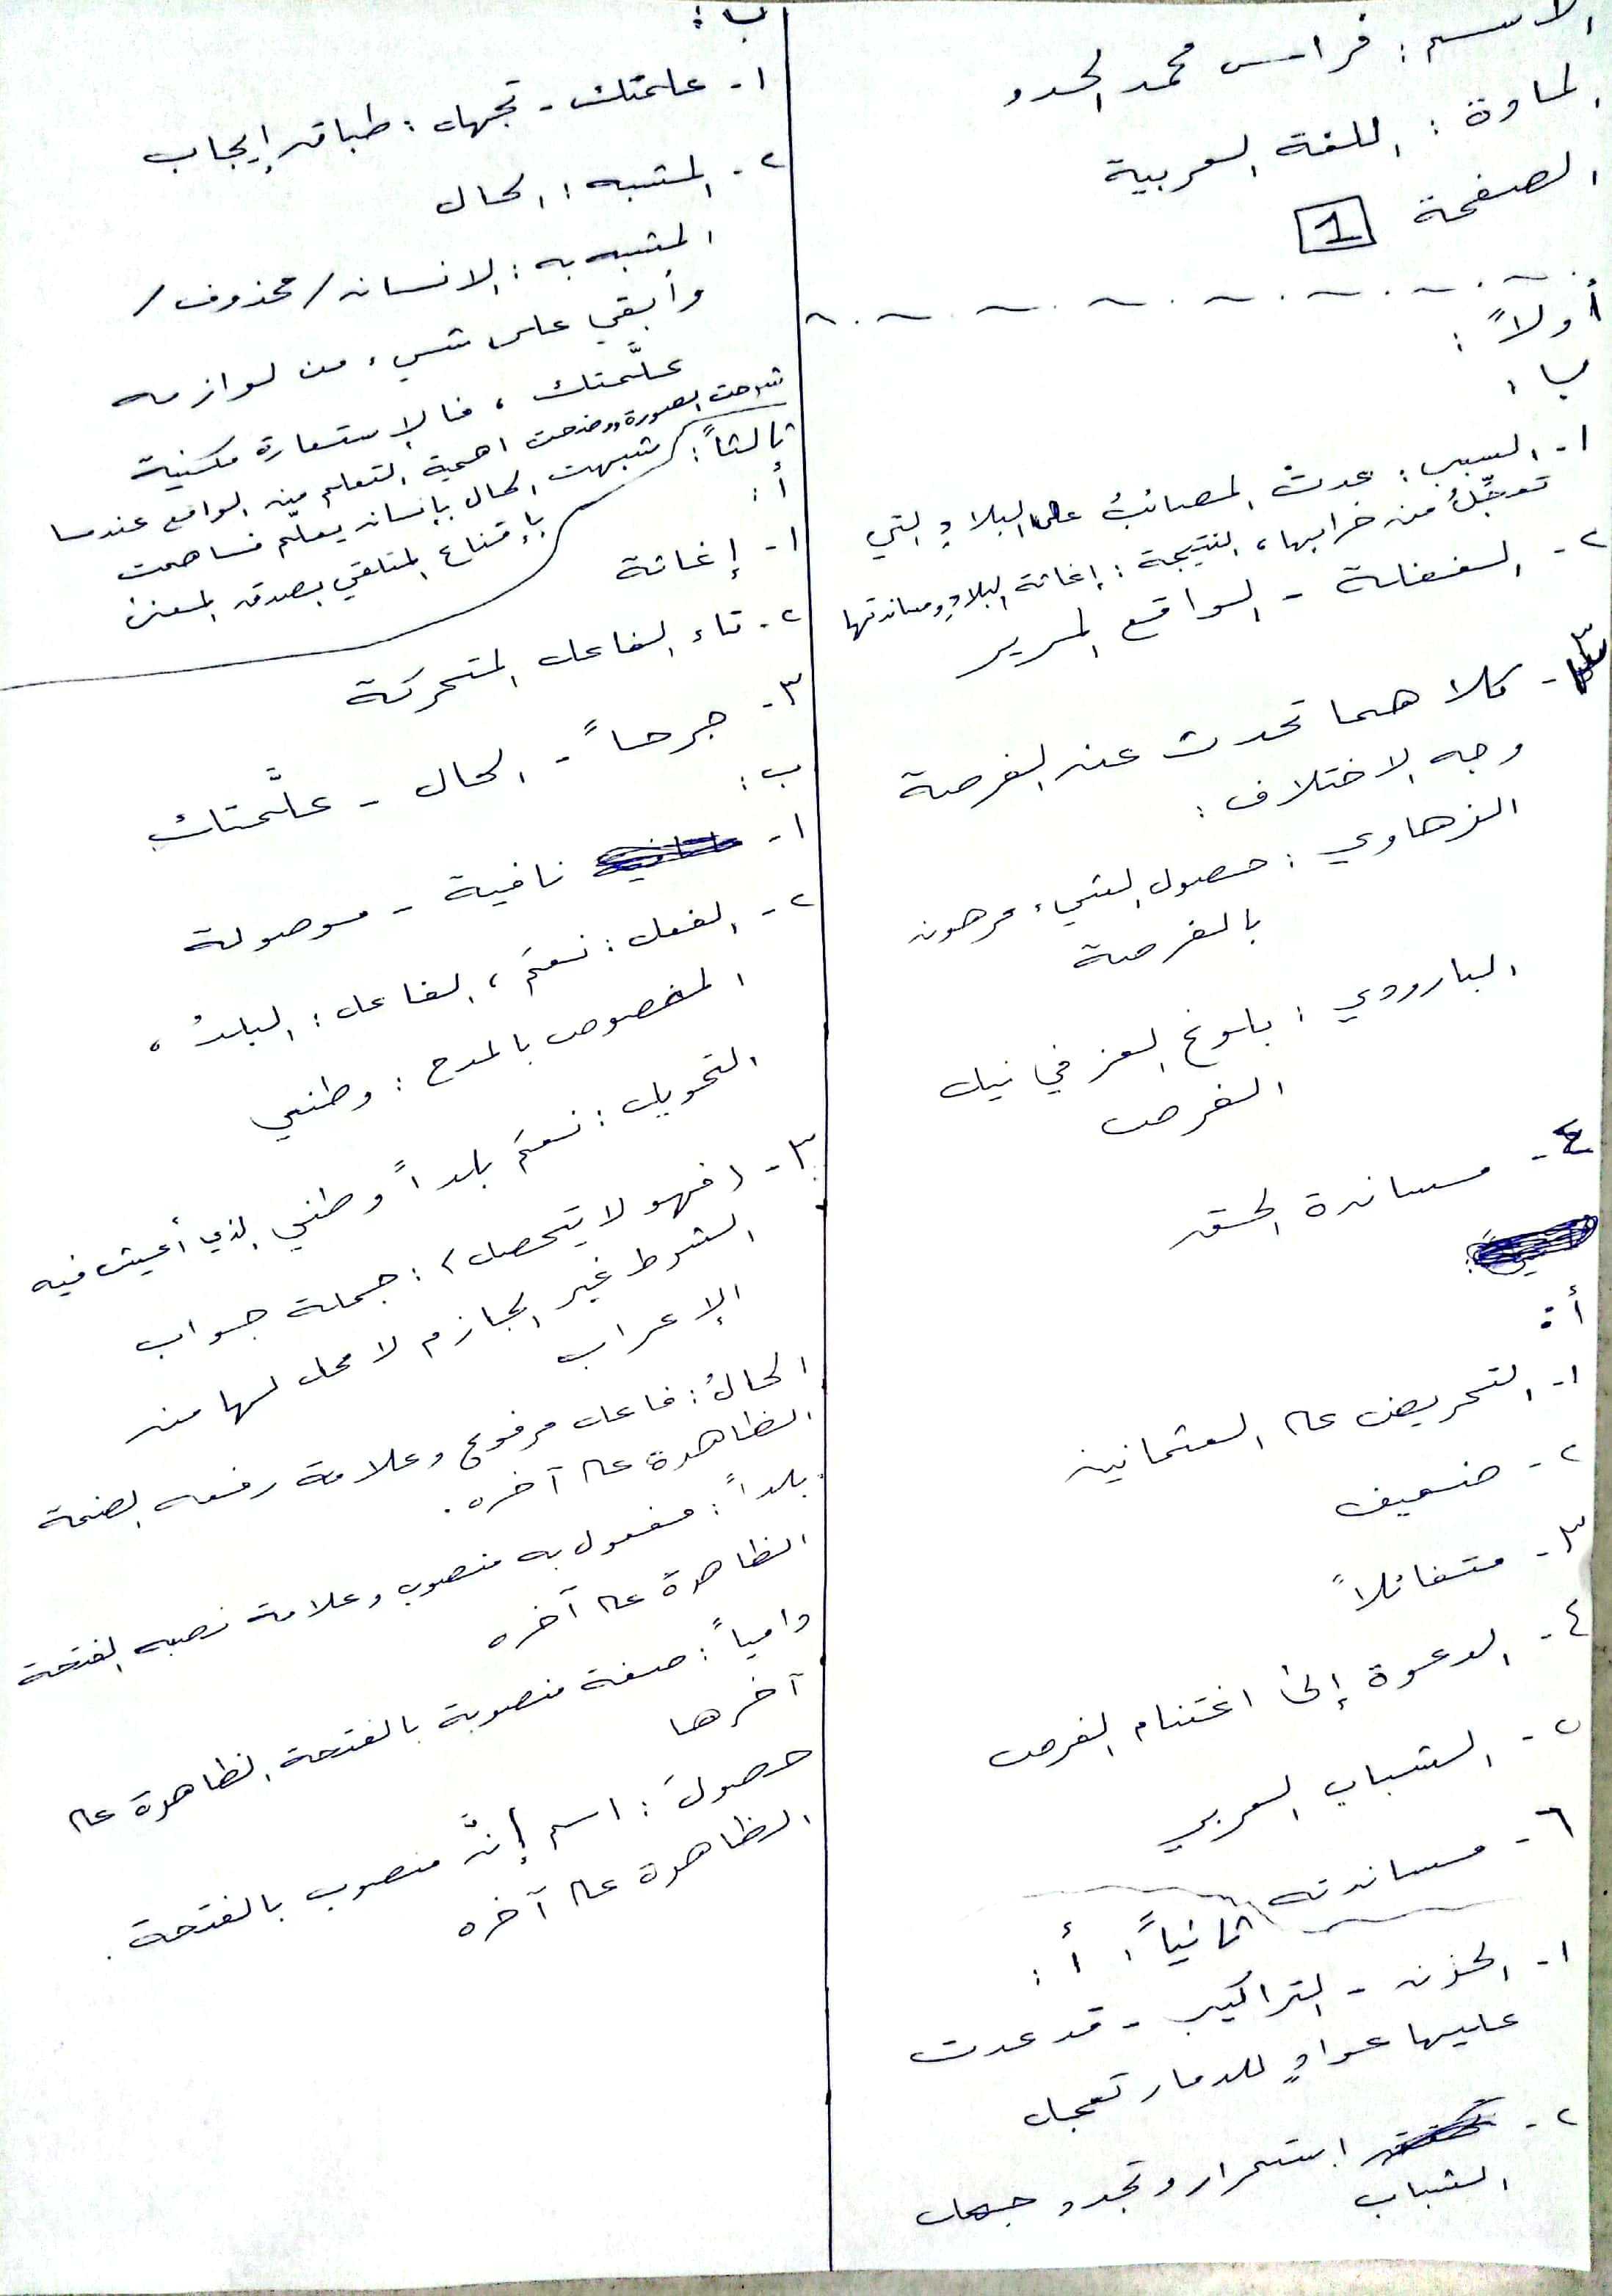 الاسم : فراس محمد الحدو
المادة : اللغة العربية
الصفحة 1
أولاً :
ب :
١- السبب : عدت المصائبُ على البلادِ التي
تعجِّلُ من خرابها ، النتيجة : إغاثة البلادِ ومساندتها
٢- الغفلة - الواقع المرير
٣- كلا هما تحدث عن الفرصة
وجه الاختلاف :
الزهاوي : حصول الشيء مرهون
بالفرصة
البارودي : بلوغ العز في نيل
الفرص
٤- مساندة الحق
أ :
١- التحريض على العثمانين
٢- ضعيف
٣- متفائلاً
٤- الدعوة إلى اغتنام الفرص
٥- الشباب العربي
٦- مساندته
ثانياً : أ :
١- الحزن - التراكيب - قد عدت
عليها عوادٍ للدمار تعجل
٢- استمرار وتجدد جهل
الشباب
ب :
١- علمتك - تجهل : طباق إيجاب
٢- المشبه : الحال
المشبه به : الانسان / محذوف /
وأبقي على شيء من لوازمه
علَّمتك ، فالاستعارة مكنية
شرحت الصورة ووضحت اهمية التعلم من الواقع عندما
شبهت الحال بإنسان يعلّم فساهمت
بإقناع المتلقي بصدق المعنى
ثالثاً :
أ :
١- إغاثة
٢- تاء الفاعل المتحركة
٣- جرحاً - الحال - علَّمتك
ب :
١- نافية - موصولة
٢- الفعل : نعمَ ، الفاعل : البلدُ ،
المخصوص بالمدح : وطني
التحويل : نعمَ بلداً وطني الذي أعيش فيه
٣- (فهو لا يتحصل) : جملة جواب
الشرط غير الجازم لا محل لها من
الإعراب
الحالُ : فاعل مرفوع وعلامة رفعه الضمة
الظاهرة على آخره .
بلداً : مفعول به منصوب وعلامة نصبه الفتحة
الظاهرة على آخره
دامياً : صفة منصوبة بالفتحة الظاهرة على
آخرها
حصولَ : اسم إنَّ منصوب بالفتحة
الظاهرة على آخره .